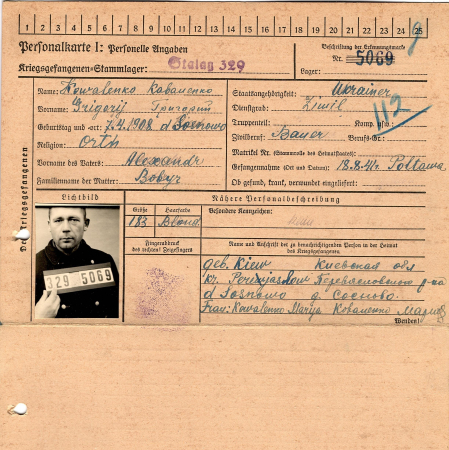 1 2 3 4 5 6 7 8 9 10 11 12 13 14 15 16 17 18 19 20 21 22 23 24 25
Personalkarte I: Personelle Angaben
Kriegsgefangenen-Stammlager: Stalag 329
Beschriftung der Erkennungsmarke
Nr. 5069
Lager:
Des Kriegsgefangenen
Name: Kowalenko Коваленко
Vorname: Grigorij Григорий
Geburtstag und -ort: 7.4.1908 d Sosnowo
Religion: Orth
Vorname des Vaters: Alexandr
Familienname der Mutter: Bobyr
Staatsangehörigkeit: Ukrainer
Dienstgrad: Zivil
Truppenteil: Komp. usw.:
Zivilberuf: Bauer Berufs-Gr.:
112
Matrikel Nr. (Stammrolle des Heimatstaates):
Gefangennahme (Ort und Datum): 18.8.41. Poltawa
Ob gesund, krank, verwundet eingeliefert:
Lichtbild
329 5069
Nähere Personalbeschreibung
Größe Haarfarbe Besondere Kennzeichen:
183 Blond
Fingerabdruck
des rechten! Zeigefingers
Name und Anschrift der zu benachrichtigenden Person in der Heimat
des Kriegsgefangenen
geb. Kiew Киевская обл
kr. Perejaslow Переяславского р-на
d Sosnowo д. Сосново
Frau: Kowalenko Marija Коваленко Мария
Wenden!